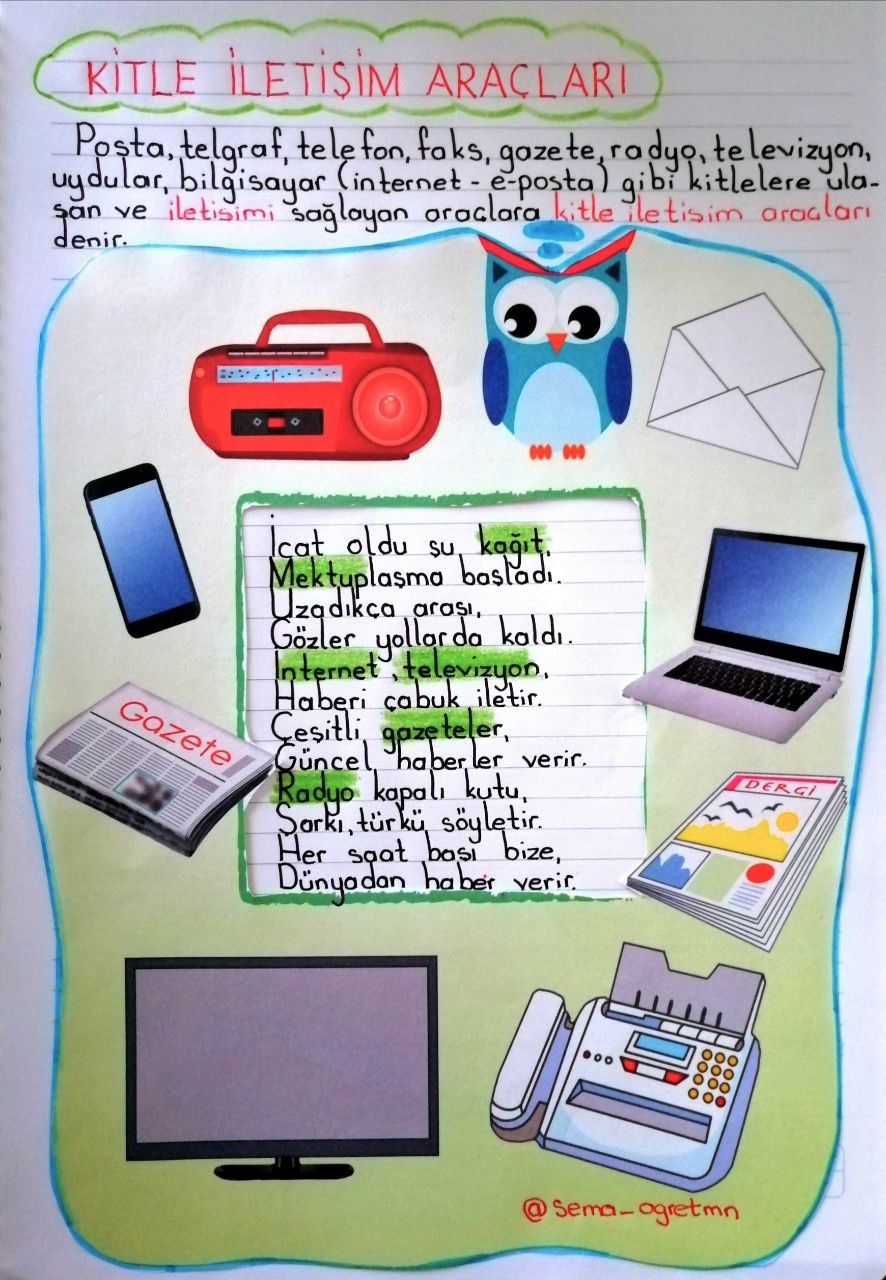 KİTLE İLETİŞİM ARAÇLARI
Posta, telgraf, telefon, faks, gazete, radyo, televizyon,
uydular, bilgisayar (internet - e-posta) gibi kitlelere ula-
şan ve iletişimi sağlayan araçlara kitle iletişim araçları
denir.
İcat oldu şu kağıt,
Mektuplaşma başladı.
Uzadıkça arası,
Gözler yollarda kaldı.
İnternet, televizyon,
Haberi çabuk iletir.
Çeşitli gazeteler,
Güncel haberler verir.
Radyo kapalı kutu,
Şarkı, türkü söyletir.
Her saat başı bize,
Dünyadan haber verir.
Gazete
DERGİ
@sema_ogretmn